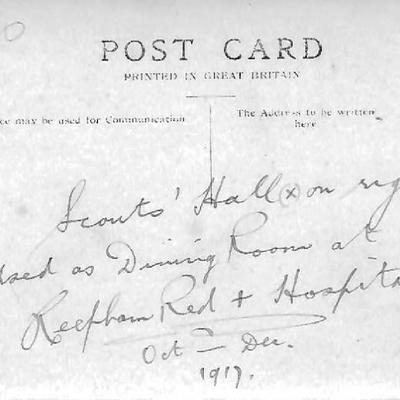 POST CARD
PRINTED IN GREAT BRITAIN
ce may be used for Communication
The Address to be written
here
Scouts' Hall (x) on rig
used as Dining Room at
Reepham Red + Hospita
Oct – Dec.
1917.